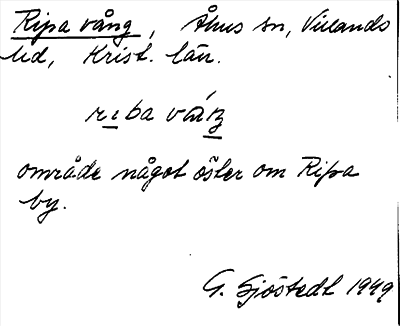 Ripa vång, Åhus sn, Villands
hd, Krist. län.
område något öster om Ripa
by.
G. Sjöstedt 1949